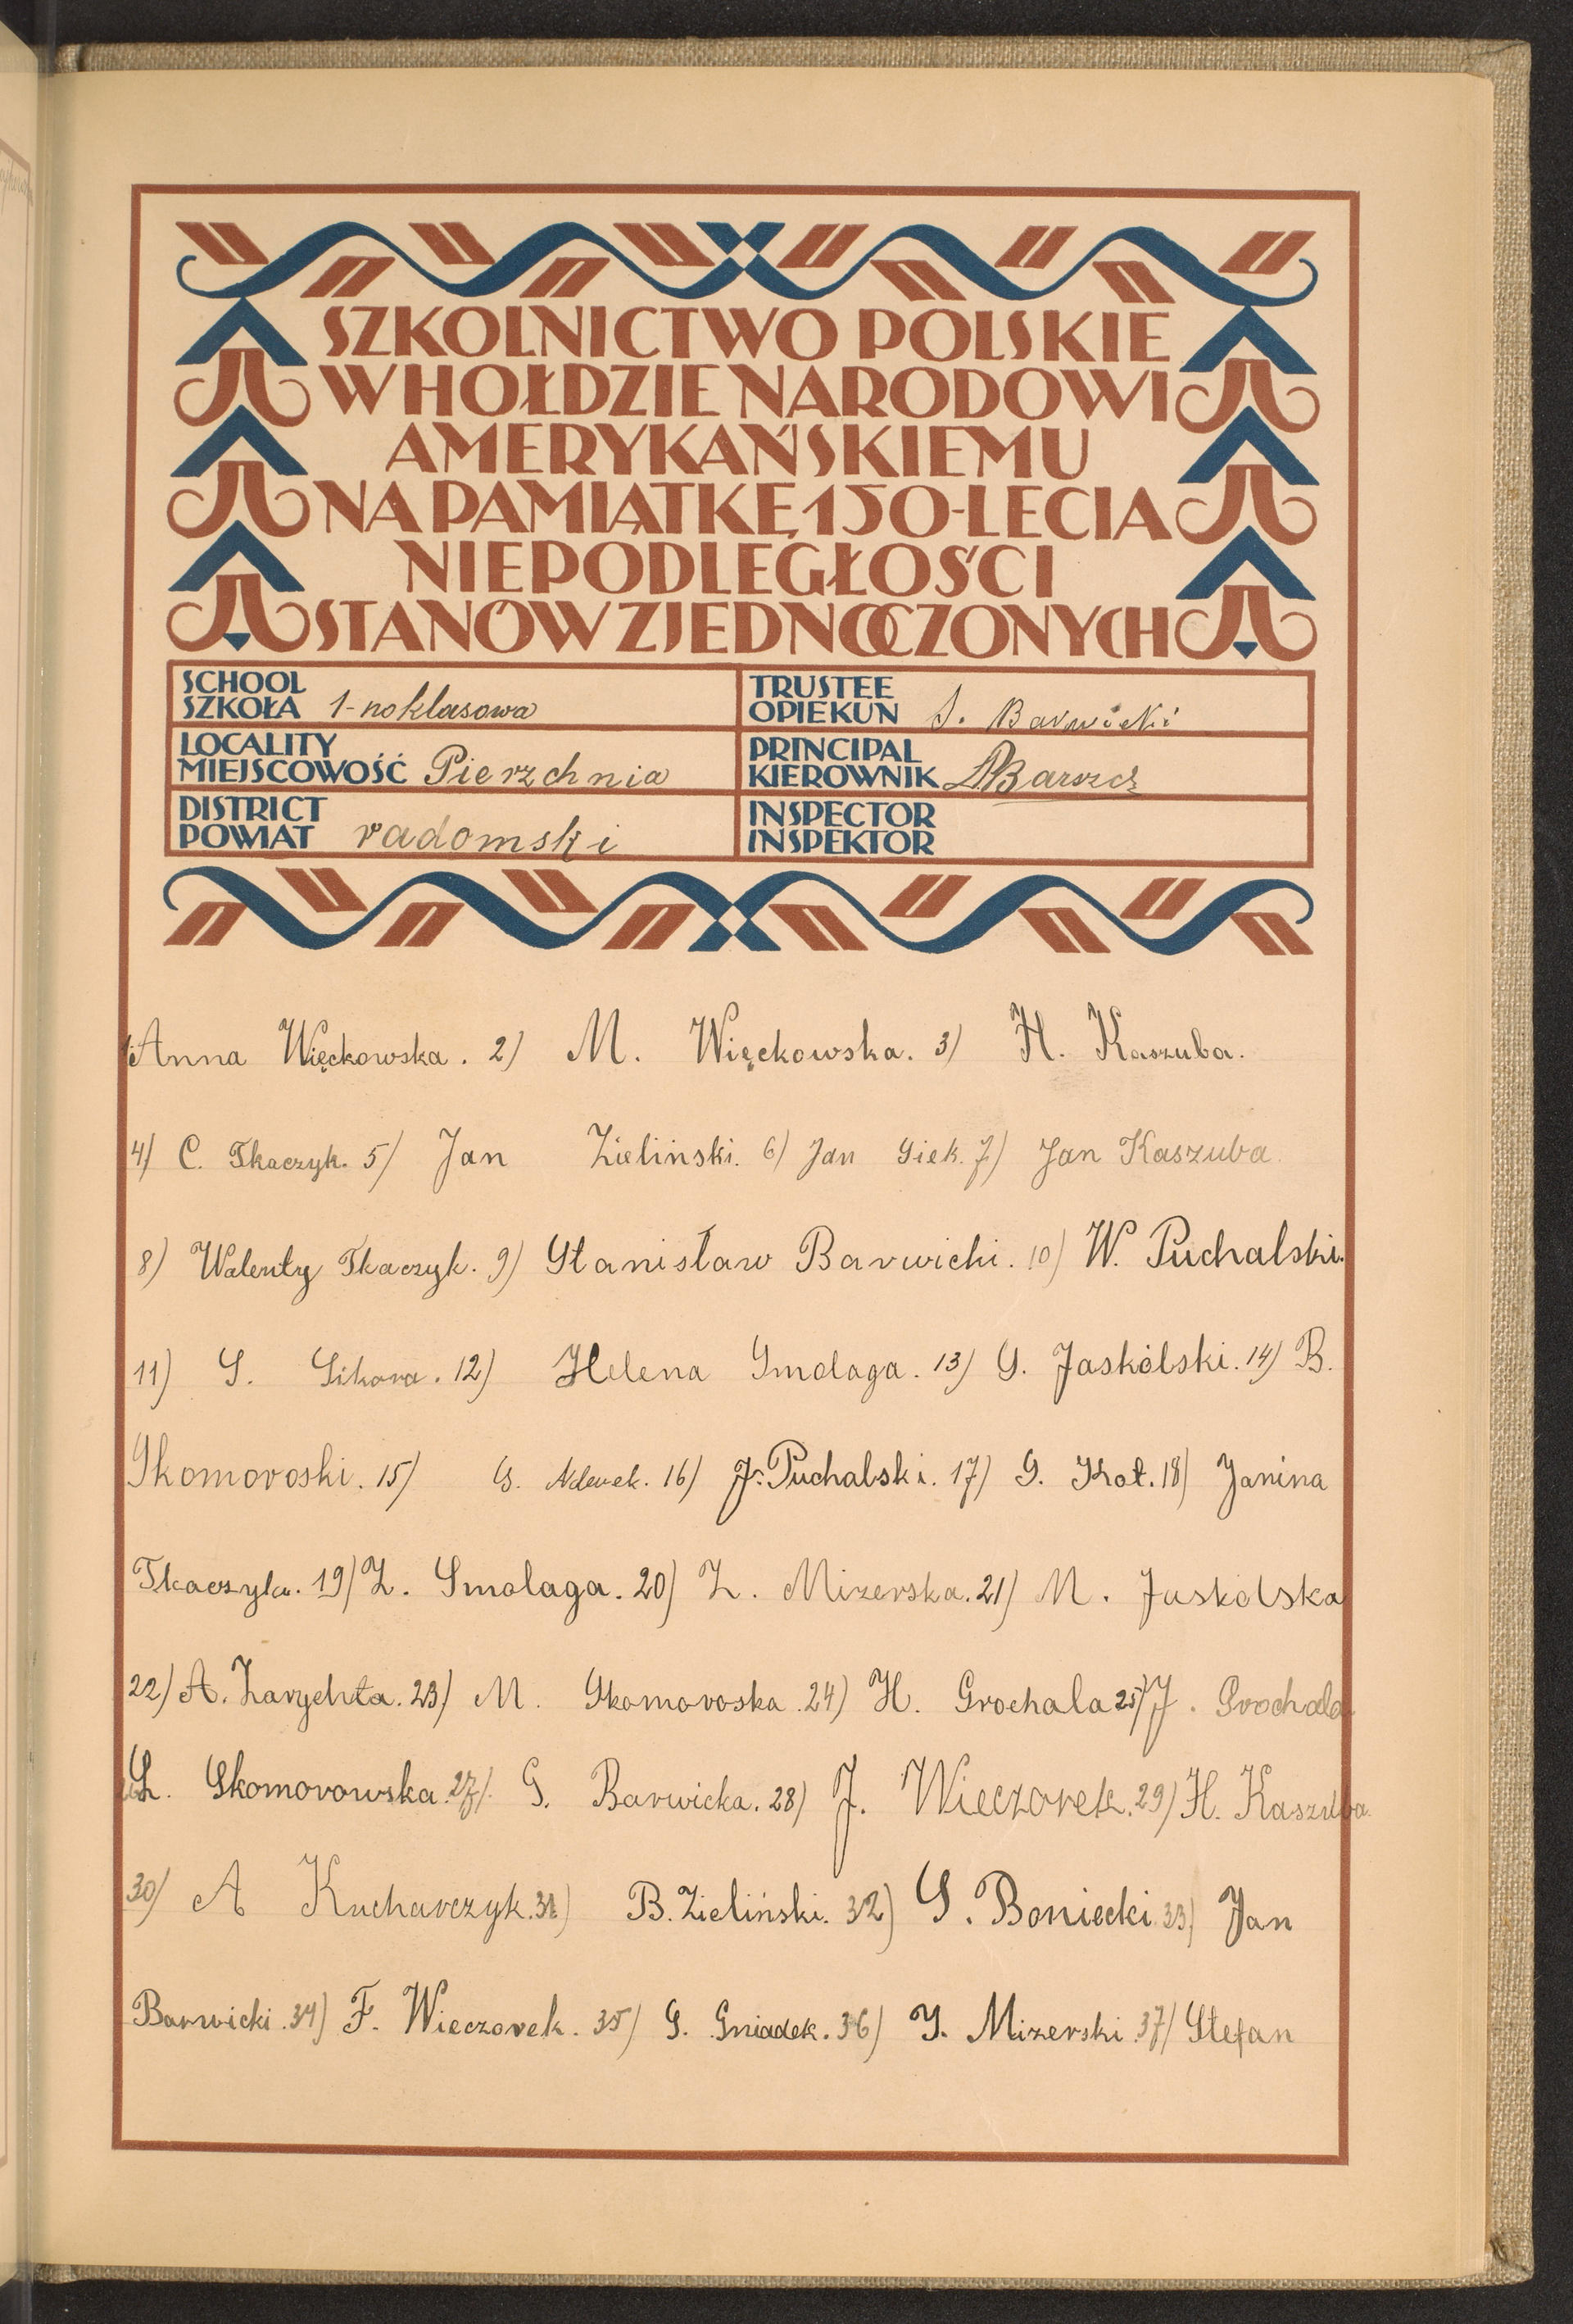 SZKOLNICTWO POLSKIE
W HOŁDZIE NARODOWI
AMERYKAŃSKIEMU
NA PAMIĄTKĘ 150-LECIA
NIEPODLEGŁOŚCI
STANÓW ZJEDNOCZONYCH
SCHOOL
SZKOŁA 1-noklasowa
TRUSTEE
OPIEKUN S. Barwicki
LOCALITY
MIEJSCOWOŚĆ Pierzchnia
PRINCIPAL
KIEROWNIK Barszcz
DISTRICT
POWIAT radomski
INSPECTOR
INSPEKTOR
1) Anna Więckowska. 2) M. Więckowska. 3) H. Kaszuba.
4) C. Tkaczyk. 5) Jan Zieliński. 6) Jan Siek. 7) Jan Kaszuba.
8) Walenty Tkaczyk. 9) Stanisław Barwicki. 10) W. Puchalski.
11) S. Sikora. 12) Helena Smolaga. 13) S. Jaskólski. 14) B.
Skomoroski. 15) S. 16) J. Puchalski. 17) S. Kot. 18) Janina
Tkaczyk. 19) Z. Smolaga. 20) Z. Mizerska. 21) M. Jaskólska
22) A. Zarychta. 23) M. Skomoroska. 24) H. Grochala 25) J. Grochala
26) L. Skomorowska. 27) G. Barwicka. 28) J. Wieczorek. 29) H. Kaszuba.
30) A Kucharczyk. 31) B. Zieliński. 32) S. Boniecki. 33) Jan
Barwicki. 34) F. Wieczorek. 35) S. Gniadek. 36) J. Mizerski. 37) Stefan